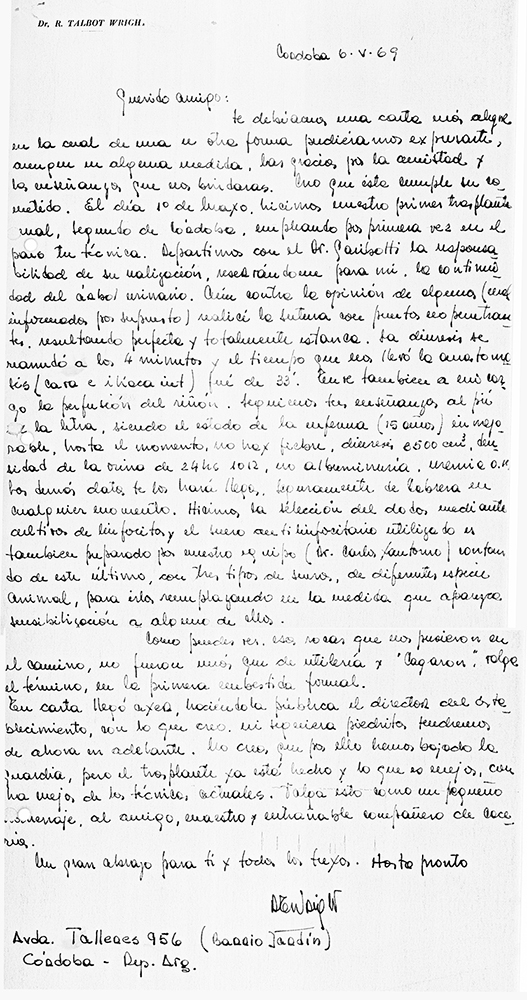 Dr. R. TALBOT WRIGH.
Córdoba 6·V·69
Querido amigo:
te debíamos una carta más alegre
en la cual de una u otra forma pudiéramos expresarte,
aunque en alguna medida, las gracias por la amistad y
las enseñanzas que nos brindaras. Creo que ésta cumple su co-
metido. El día 1º de Mayo hicimos nuestro primer trasplante
renal, segundo de Córdoba, empleando por primera vez en el
país tu técnica. Departimos con el Dr. Garibotti la responsa-
bilidad de su realización, reservándome para mi, la continui-
dad del árbol urinario. Aún contra la opinión de algunos (mal
informados por supuesto) realicé la sutura con puntos no penetran-
tes, resultando perfecta y totalmente estanca. La diuresis se
reanudó a los 4 minutos y el tiempo que nos llevó la anastomo-
sis (cava e ilíaca int) fué de 33'. Tuve tambien a mi car-
go la perfusión del riñón. Seguimos tus enseñanzas al pié
de la letra, siendo el estado de la enferma (15 años) inmejo-
rable, hasta el momento, no hay fiebre, diuresis 2500 cm³, den-
sidad de la orina de 24 hs 1012, no albuminuria, uremia
los demás datos te los hará llegar, seguramente de Cabrera en
cualquier momento. Hicimos la selección del dador mediante
cultivos de linfocitos y el suero antilinfocitario utilizado es
tambien preparado por nuestro equipo (Dr. Carlos ) contan-
do de este último, con tres tipos de sueros, de diferentes especie
animal, para irlos reemplazando en la medida que aparezca
sensibilización a alguno de ellos.
Como puedes ver, esas rocas que nos pusieron en
el camino, no fueron más que de utilería y "Cagaron", valga
el término, en la primera embestida formal.
Tu carta llegó ayer, haciéndola pública el director del esta-
blecimiento, con lo que creo, ni siquiera piedritas tendremos
de ahora en adelante. No creo, que por ello hemos bajado la
guardia, pero el trasplante ya está hecho y lo que es mejor, con
una mejor de las técnicas actuales. Valga esto como un pequeño
homenaje, al amigo, maestro y entrañable compañero de cace-
rías.
Un gran abrazo para ti y todos los tuyos. Hasta pronto
Avda. Talleres 956 (Barrio Jardín)
Córdoba - Rep. Arg.